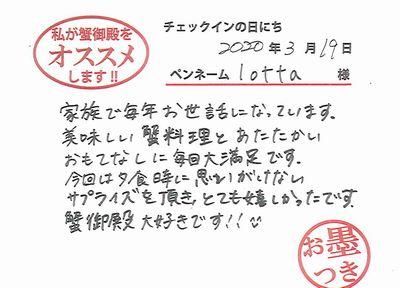 私が蟹御殿を
オススメ
します!!
チェックインの日にち
2020年3月19日
ペンネーム lotta 様
家族で毎年お世話になっています。
美味しい蟹料理とあたたかい
おもてなしに毎回大満足です。
今回は夕食時に思いがけない
サプライズを頂き、とても嬉しかったです。
蟹御殿大好きです!!
お墨
つき